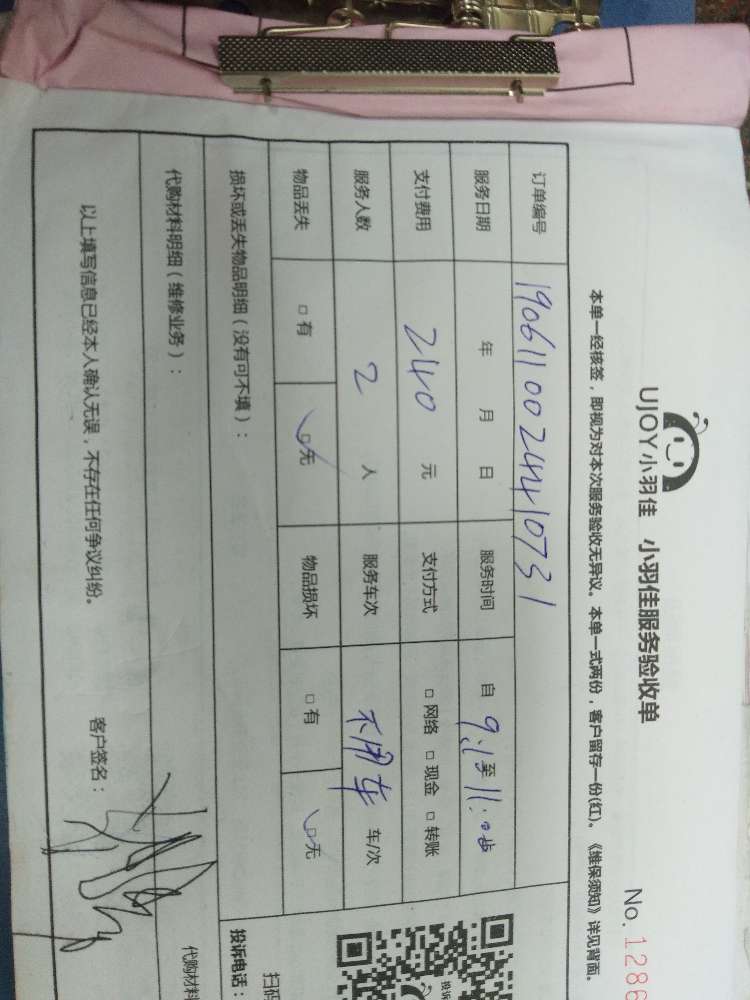 UJOY小羽佳 小羽佳服务验收单
No. 1286
本单一经核签，即视为对本次服务验收无异议。本单一式两份，客户留存一份(红)。《维保须知》详见背面。
订单编号 190611002444410731
服务日期 年 月 日 服务时间 自 至 11:
支付费用 240 元 支付方式 □网络 □现金 □转账
服务人数 2 人 服务车次 不用车 车/次
物品丢失 □有 □无 物品损坏 □有 □无
损坏或丢失物品明细（没有可不填）：
代购材料明细（维修业务）：
以上填写信息已经本人确认无误，不存在任何争议纠纷。 客户签名：
投诉
投诉电话：
扫码
代购材料